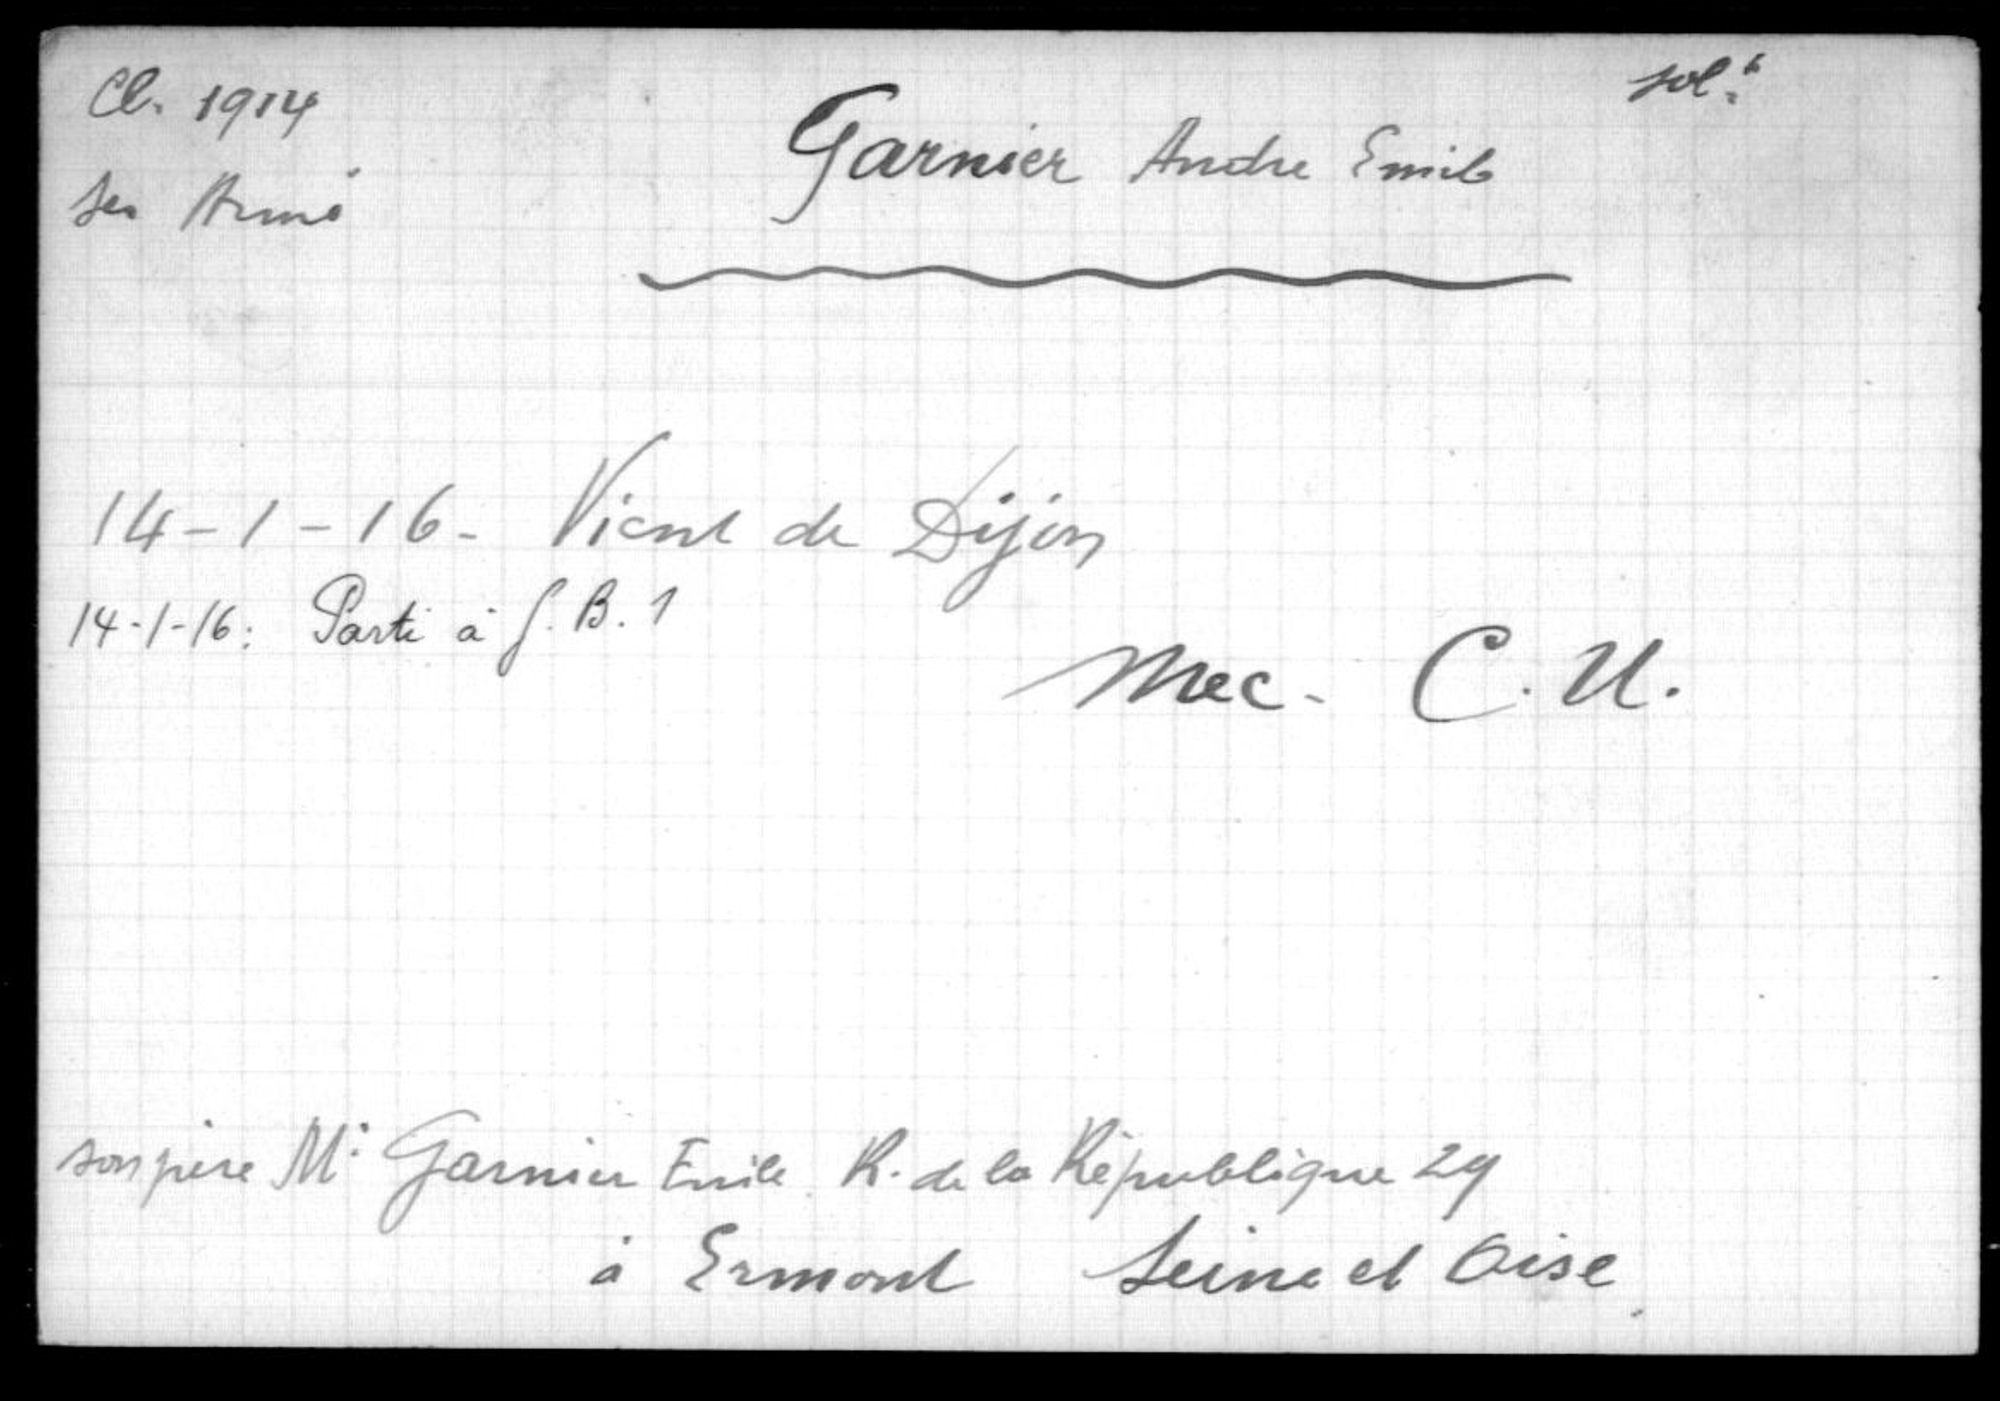 Cl. 1914
Ser Armé
Garnier Andre Emile
solt
14-1-16- Vient de Dijon
14-1-16: Parti à G.B.1
Mec- C.U.
son père Mr Garnier Emile R. de la République 29
à Ermont Seine et Oise